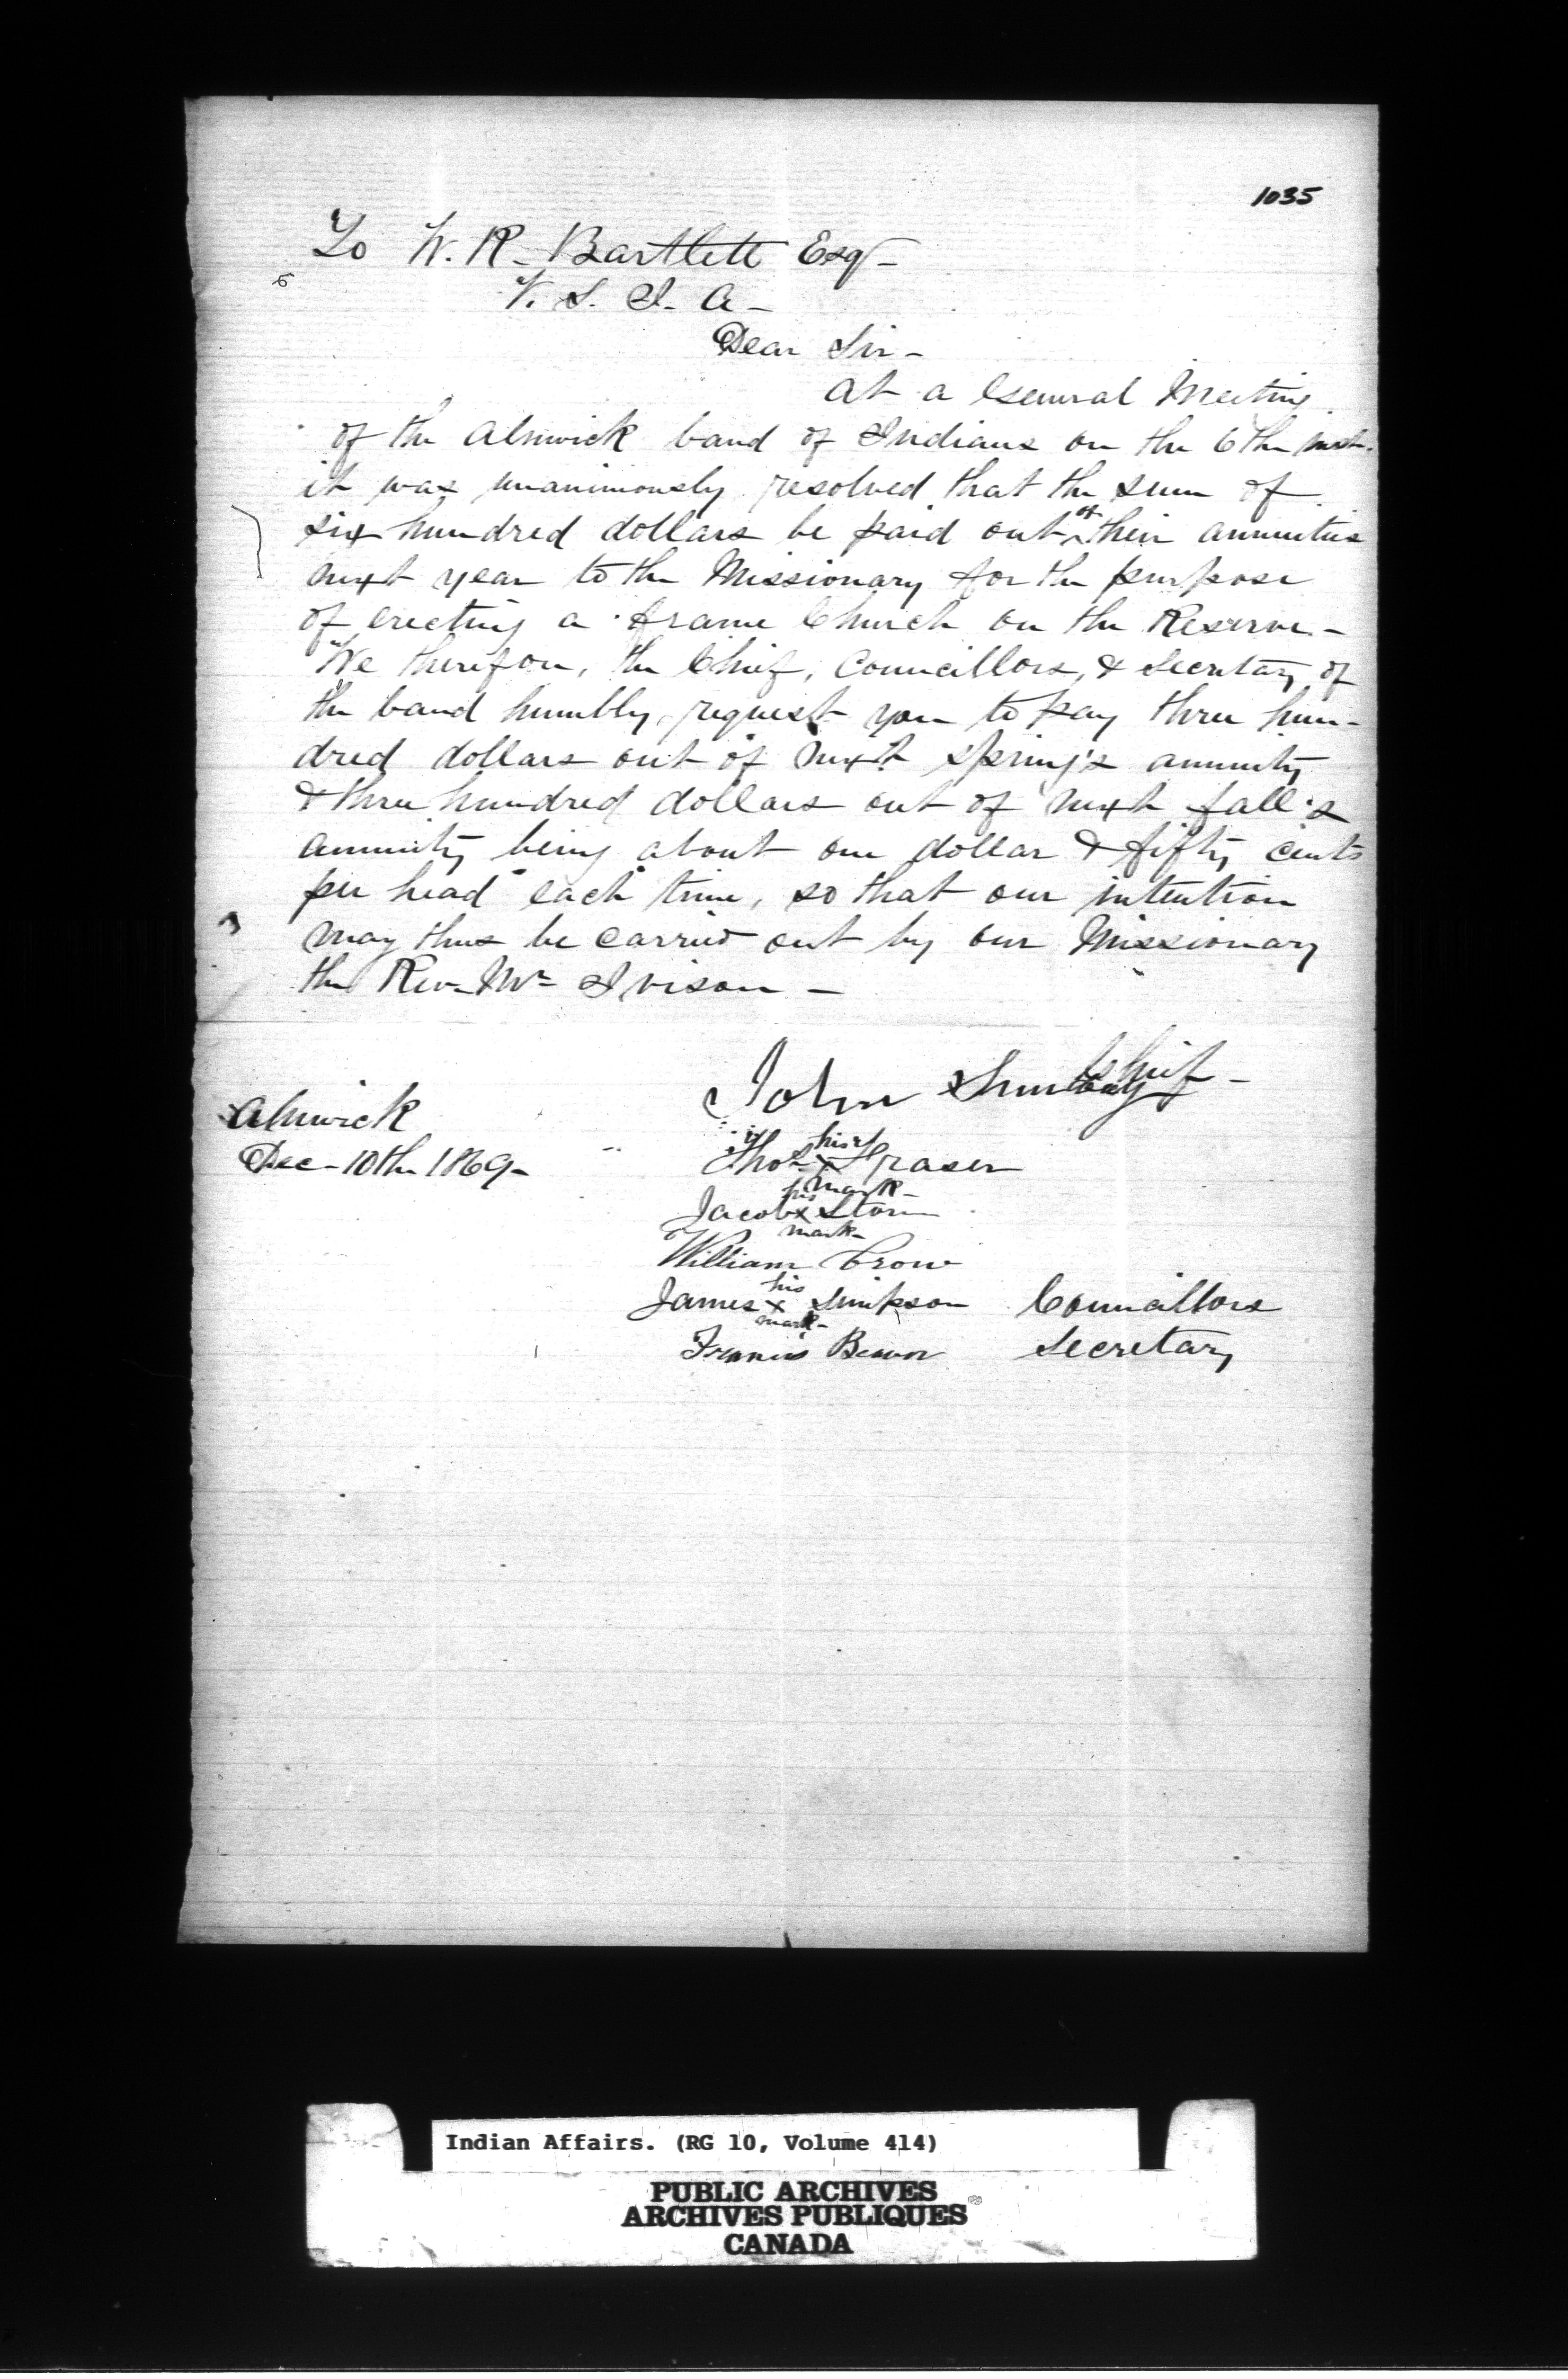 1035
To W. R. Bartlett Esq-
V. S. I. A-
Dear Sir-
At a General Meeting
of the Alnwick band of Indians on the 6th inst.
it was unanimously resolved that the sum of
six hundred dollars be paid out of their annuities
next year to the Missionary for the purpose
of erecting a frame Church on the Reserve.-
We therefore, the Chief, Councillors, & Secretary of
the band humbly request you to pay three hun-
dred dollars out of next spring's annuity
& three hundred dollars out of next fall's
annuity being about one dollar & fifty cents
per head each time, so that our intention
may thus be carried out by our Missionary
the Rev. Mr Ivison -
John Sunday Chief-
Alnwick
Dec- 10th 1869-
Thos his x mark- Frasen
Jacob his x mark- Storm
William Crow
James his x mark- Simpson Councillors
Francis Beaver Secretary
Indian Affairs. (RG 10, Volume 414)
PUBLIC ARCHIVES
ARCHIVES PUBLIQUES
CANADA